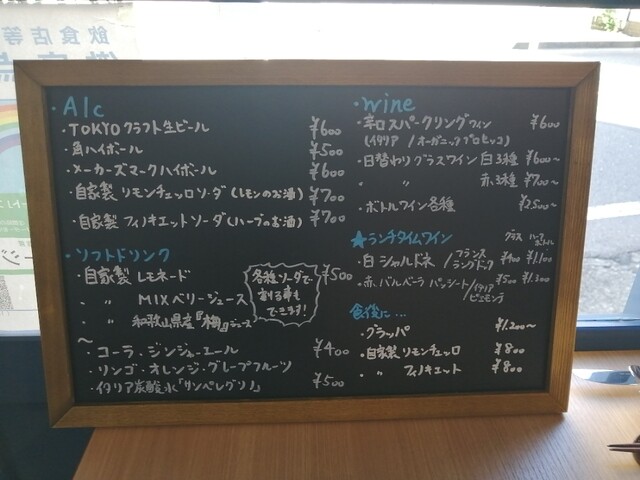 飲食店等
・Alc
・TOKYOクラフト生ビール ¥600
・角ハイボール ¥500
・メーカーズマークハイボール ¥600
・自家製 リモンチェッロソーダ(レモンのお酒) ¥700
・自家製 フィノキエットソーダ(ハーブのお酒) ¥700
・ソフトドリンク
・自家製 レモネード ¥500
・ 〃 MIXベリージュース
・ 〃 和歌山県産『梅』ジュース
各種ソーダで
割る事も
できます!
〜
・コーラ・ジンジャーエール ¥400
・リンゴ・オレンジ・グレープフルーツ
・イタリア炭酸水「サンペレグリノ」 ¥500
・wine
・辛口スパークリングワイン ¥600
(イタリア / オーガニックプロセッコ)
・日替わりグラスワイン 白3種 ¥600〜
〃 赤3種 ¥700〜
・ボトルワイン各種 ¥2,500〜
★ランチタイムワイン グラス ハーフボトル
・白 シャルドネ / フランス ラングドック ¥400 ¥1,100
・赤 バルベーラ パッシート / イタリア ピエモンテ ¥500 ¥1,300
食後に…
・グラッパ ¥1,200〜
・自家製 リモンチェッロ ¥800
・ 〃 フィノキエット ¥800